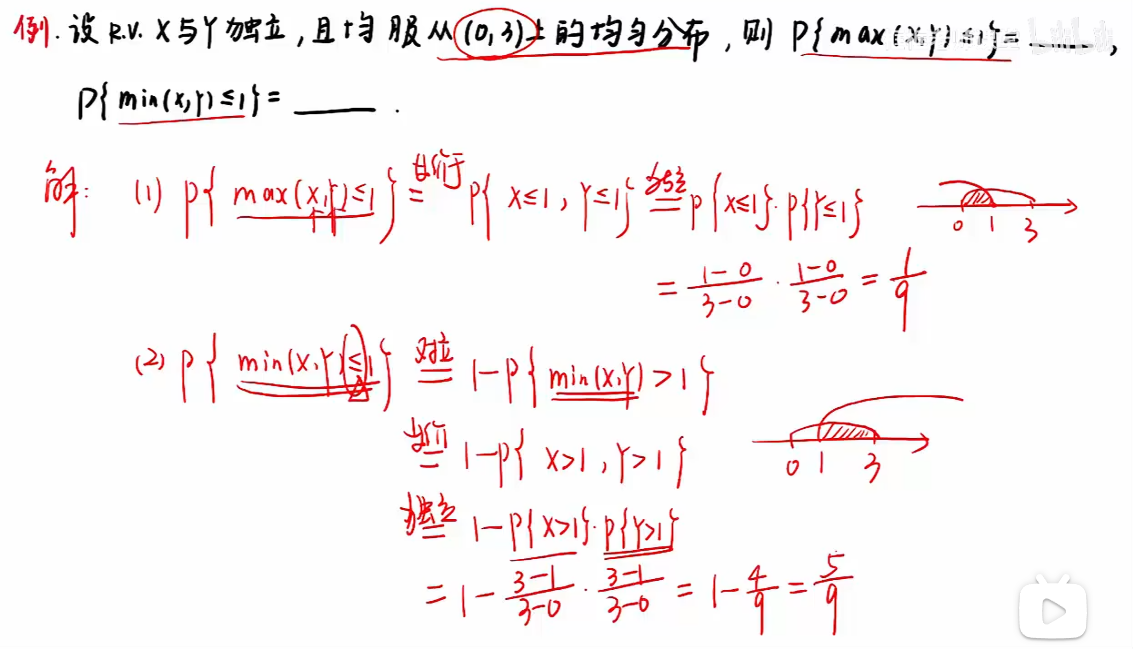 例. 设 R.V. X与Y独立, 且均服从(0,3)上的均匀分布, 则 P{max(X,Y)≤1}=____,
P{min(X,Y)≤1}=____.
解: (1) P{max(X,Y)≤1} 等价于= P{X≤1, Y≤1} 独立= P{X≤1}·P{Y≤1}
0 1 3
= (1-0)/(3-0) · (1-0)/(3-0) = 1/9
(2) P{min(X,Y)≤1} 对立= 1-P{min(X,Y)>1}
等价= 1-P{X>1, Y>1}
0 1 3
独立= 1-P{X>1}·P{Y>1}
= 1-(3-1)/(3-0) · (3-1)/(3-0) = 1-4/9 = 5/9